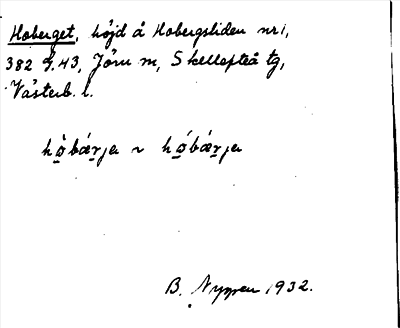 Hoberget, höjd å Hobergsliden nr 1,
382 f. 43, Jörn sn, Skellefteå tg,
Västerb. l.
hò̱bǽrja ~ hó̱bǽrja
B. Nygren 1932.